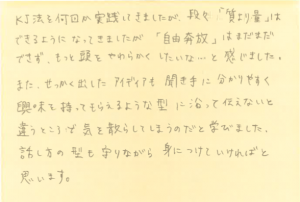 KJ法を何回か実践してきましたが、段々「質より量」は
できるようになってきましたが「自由奔放」はまだまだ
できず、もっと頭をやわらかくしたいな…と感じました。
また、せっかく出したアイディアも聞き手に分かりやすく
興味を持ってもらえるような型に沿って伝えないと
違うところで気を散らしてしまうのだと学びました。
話し方の型も守りながら身につけていければと
思います。